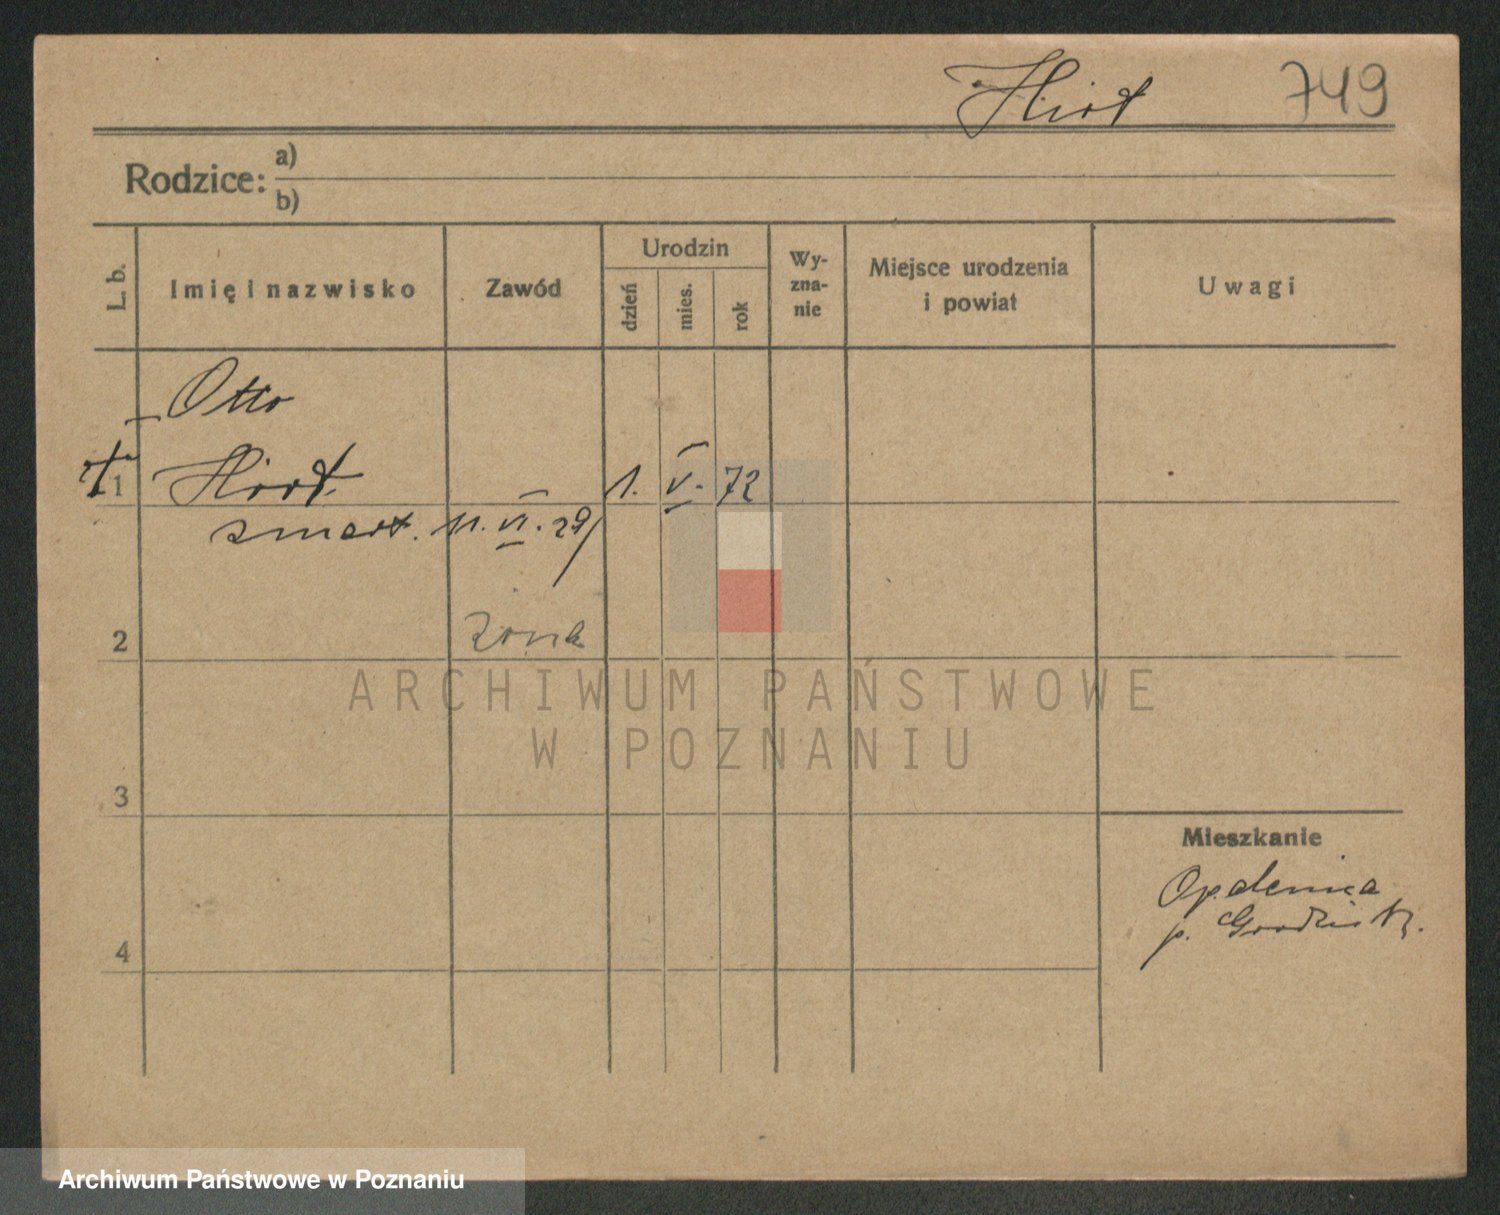 Hirt 749
Rodzice: a)
b)
L. b.
Imię i nazwisko
Zawód
Urodzin
dzień
mies.
rok
Wy-
zna-
nie
Miejsce urodzenia
i powiat
Uwagi
Otto
1 Hirt 1. VI. 72
zmart. 11. VI. 29
2 żona
ARCHIWUM PAŃSTWOWE
W POZNANIU
3
Mieszkanie
Opalenica
p. Grodzisk
4
Archiwum Państwowe w Poznaniu